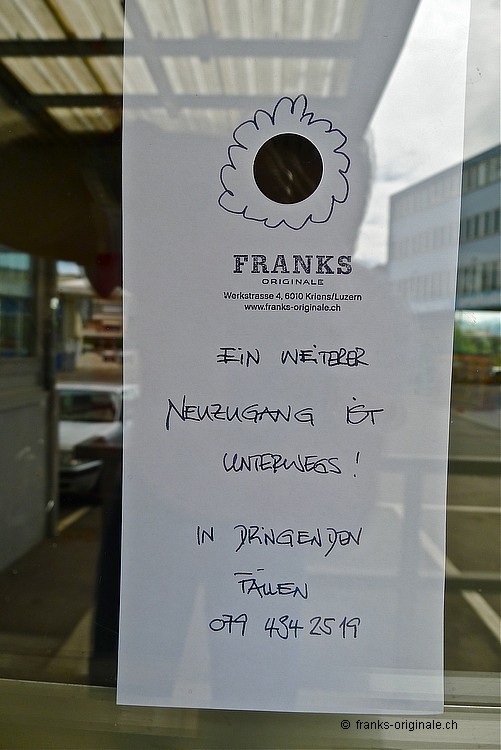 FRANKS
ORIGINALE
Werkstrasse 4, 6010 Kriens/Luzern
www.franks-originale.ch
EIN WEITERER
NEUZUGANG IST
UNTERWEGS!
IN DRINGENDEN
FÄLLEN
079 434 25 19
© franks-originale.ch